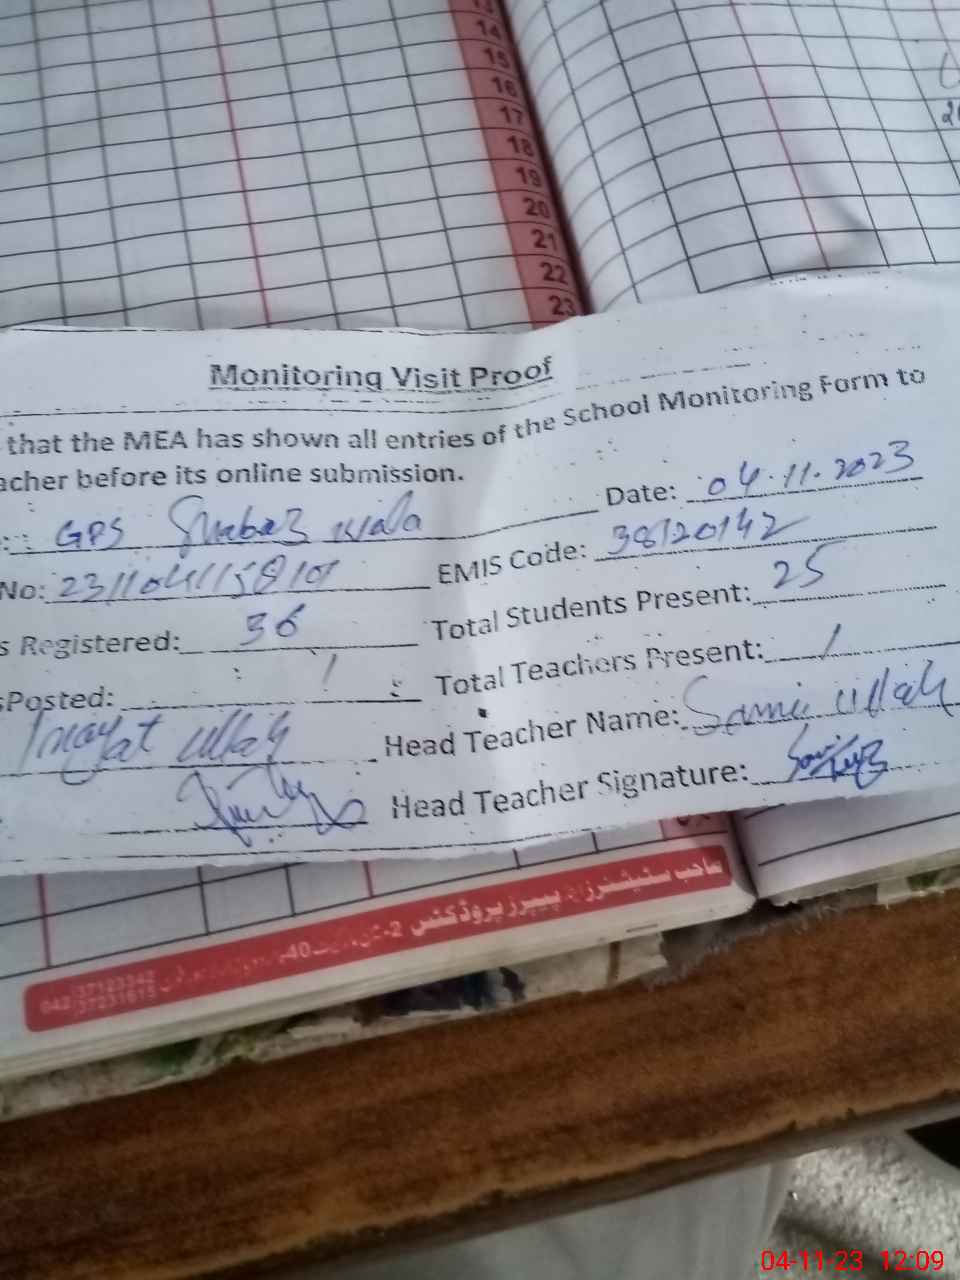 14
15
16
17
18
19
20
21
22
23
Monitoring Visit Proof
that the MEA has shown all entries of the School Monitoring Form to
acher before its online submission.
Date: 04.11.2023
: GPS wala
EMIS Code: 38120142
No:
s Registered: 36
Total Students Present: 25
sPosted: 1
Total Teachers Present: 1
Inayat ullah
Head Teacher Name: Sami ullah
Head Teacher Signature:
صاحب سٹیشنرز اینڈ پیپرز پروڈکٹس 2-
40-
042
37123242
37231615
04-11-23 12:09